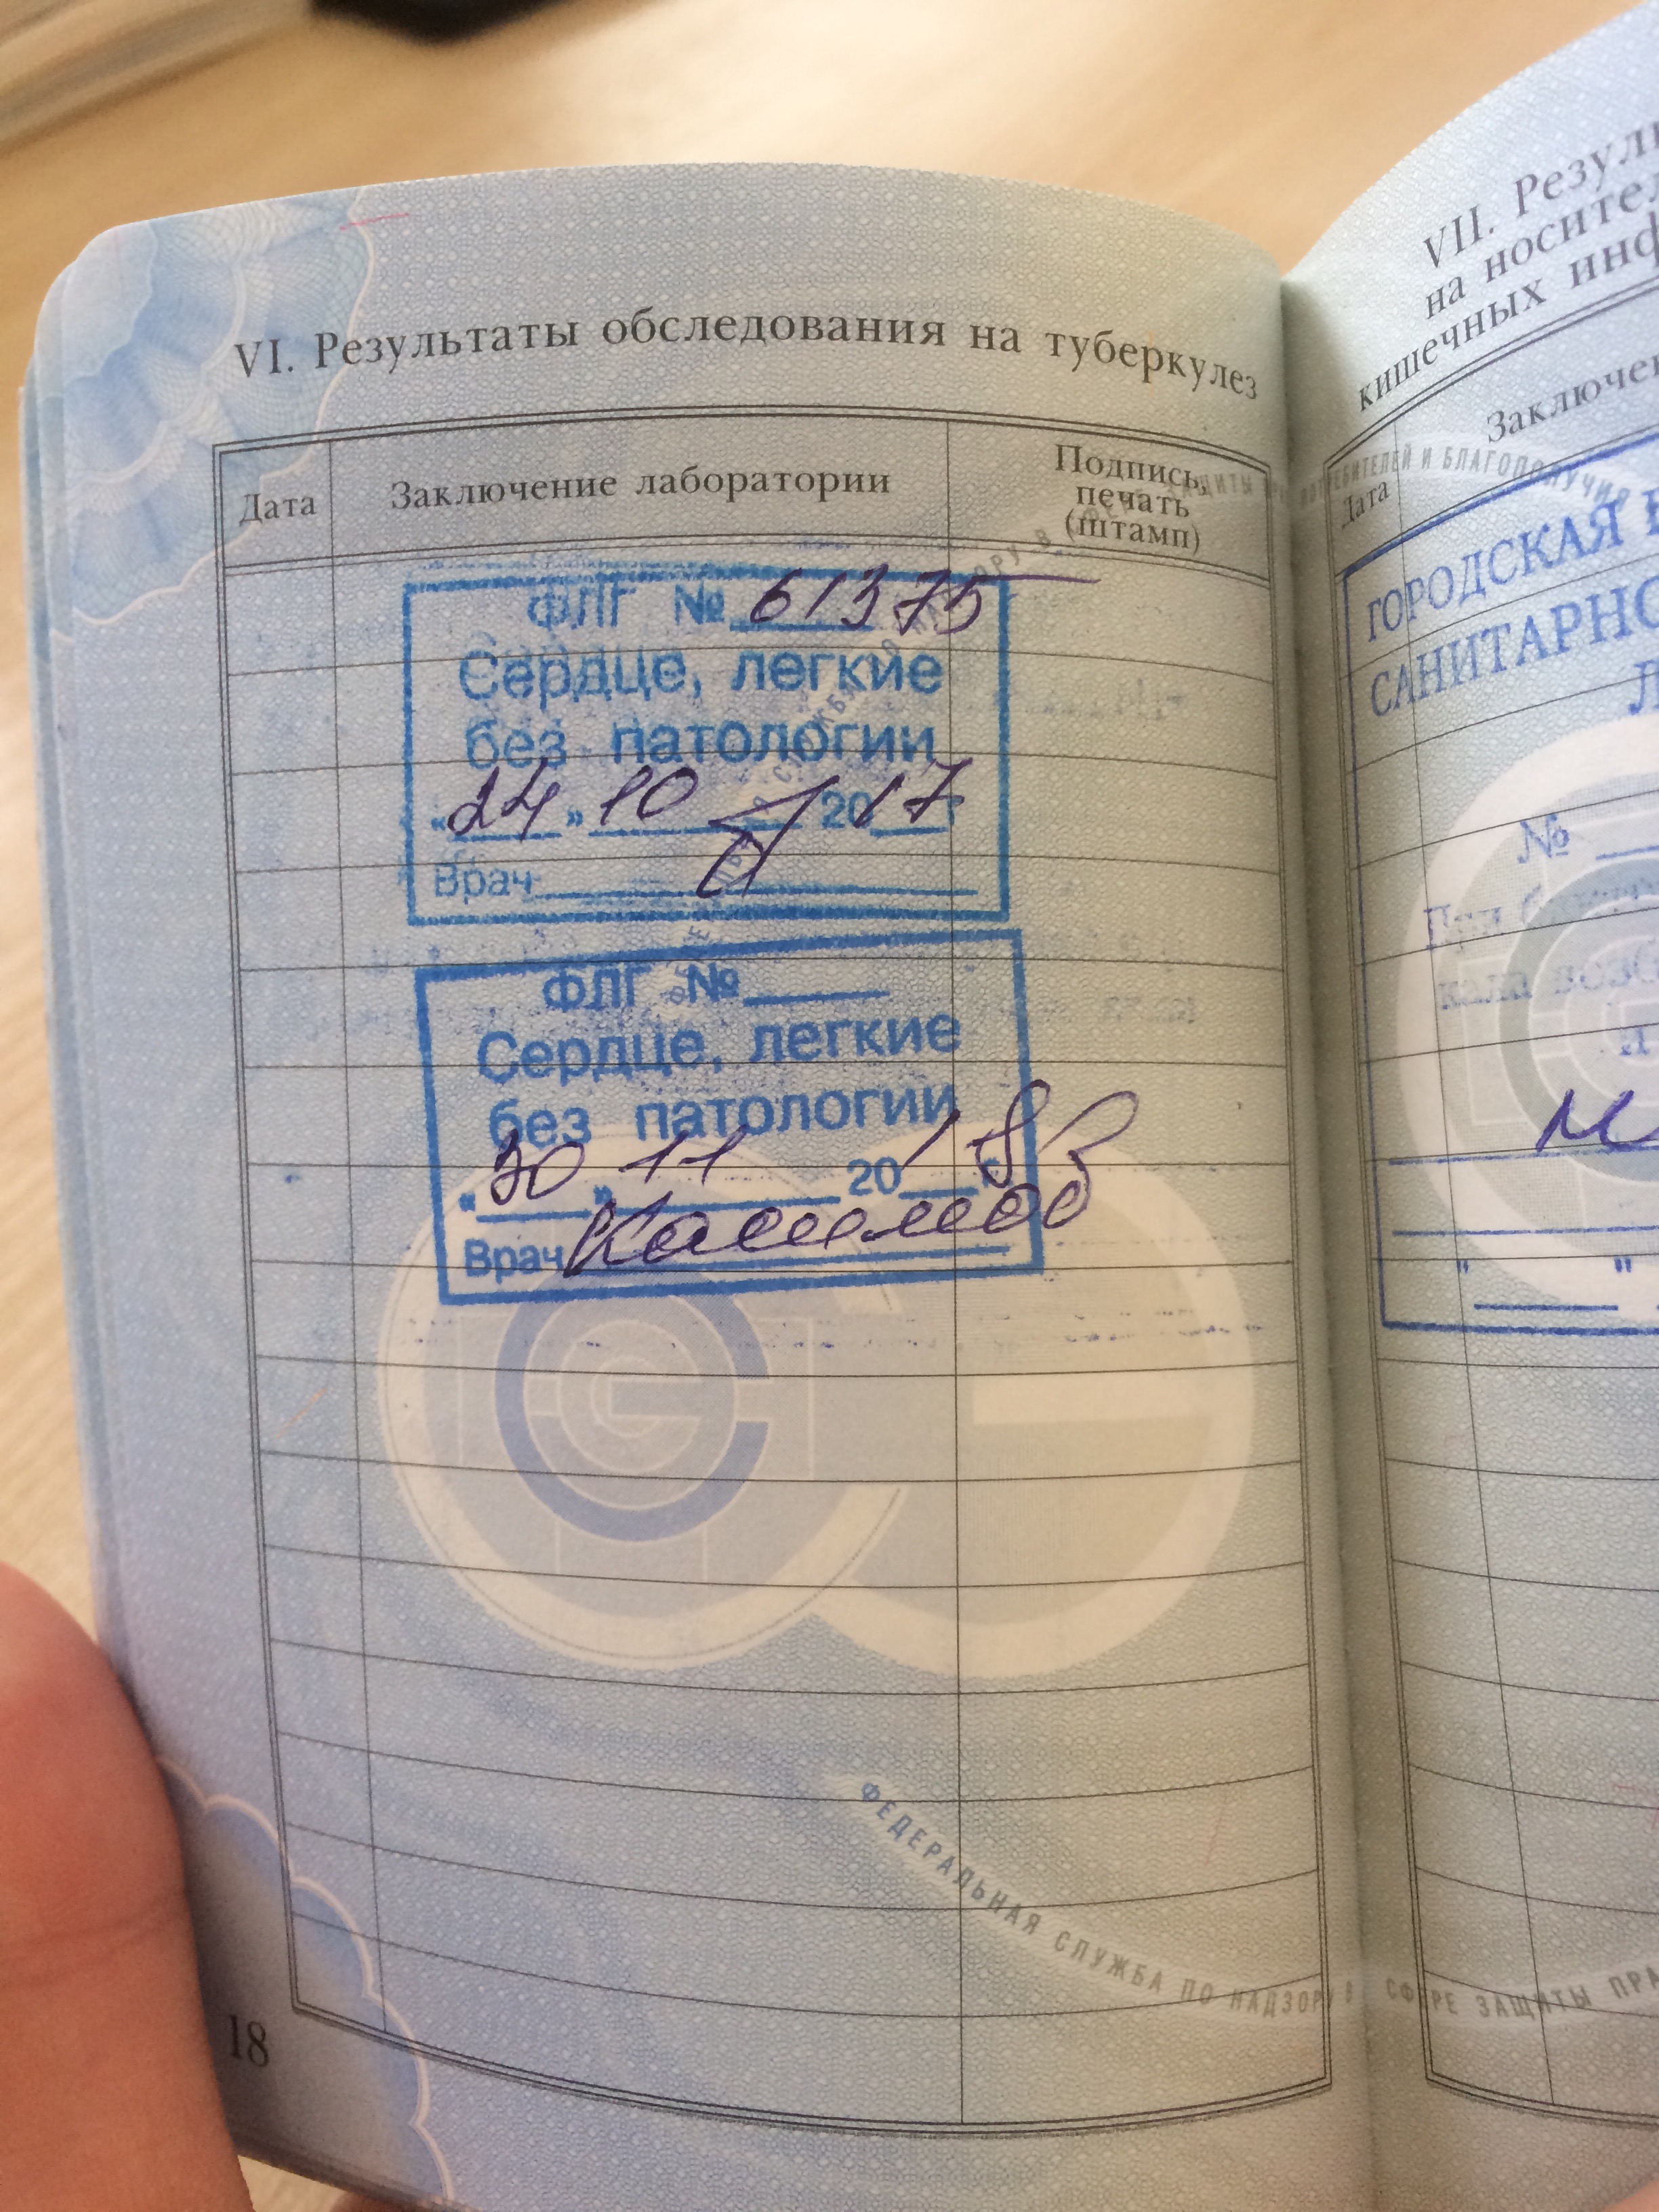 VI. Результаты обследования на туберкулез
Дата
Заключение лаборатории
Подпись,
печать
(штамп)
ФЛГ № 61375
Сердце, легкие
без патологии
"24" 10 2017 г
Врач
ФЛГ №
Сердце, легкие
без патологии
"30" 11 2018 г
Врач
ФЕДЕРАЛЬНАЯ СЛУЖБА ПО НАДЗОРУ В СФЕРЕ ЗАЩИТЫ ПРА
18
VII. Резуль
на носител
кишечных инф
Дата
Заключен
ГОРОДСКАЯ
САНИТАРНО
Л
№
При
кала возб
и
" "